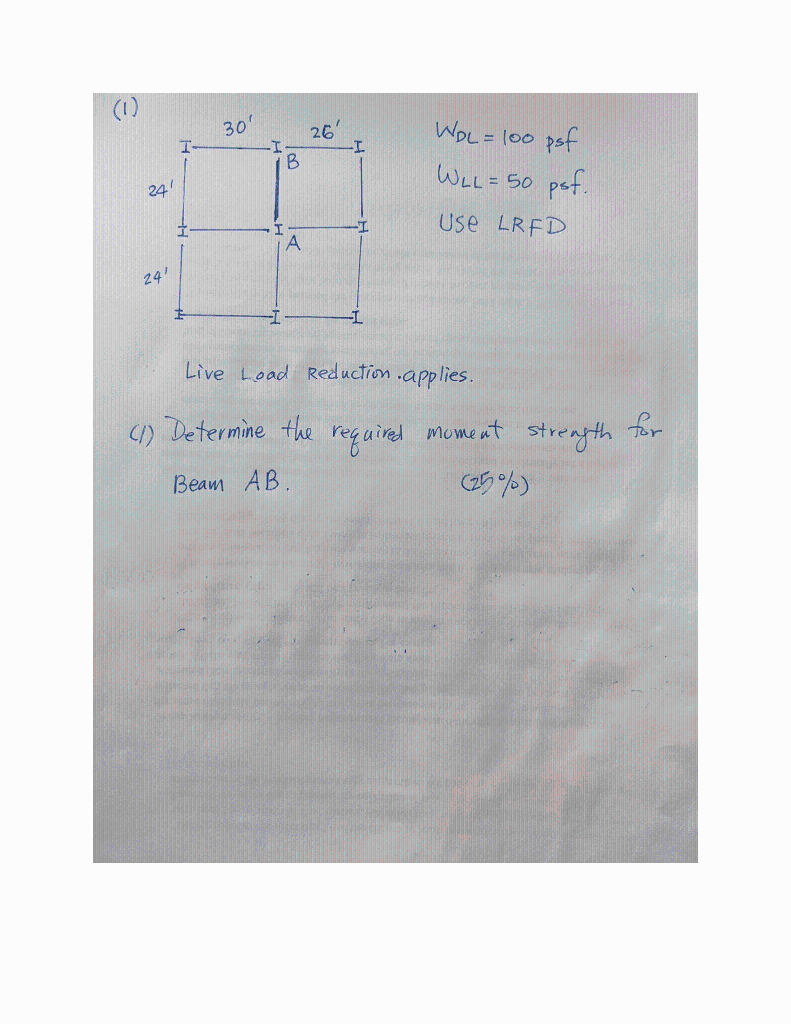 (1)
30' 26'
WDL = 100 psf
B
24'
WLL = 50 psf.
USE LRFD
A
24'
Live Load Reduction.applies.
(1) Determine the required moment strength for
Beam AB. (25%)